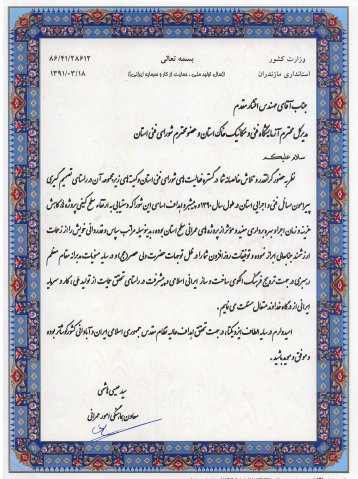 بسمه تعالی
وزارت کشور
استانداری مازندران
(سال تولید ملی ، حمایت از کار و سرمایه ایرانی)
۸۶/۴۱/۲۸۶۱۲
۱۳۹۱/۰۳/۱۸
جناب آقای مهندس افشار مقدم
مدیرکل محترم آزمایشگاه فنی و مکانیک خاک استان و عضو محترم شورای فنی استان
سلام علیکم
نظر به حضور کارآمد و تلاش خالصانه شما در گستره فعالیت های شورای فنی استان و کمیته های زیرمجموعه آن در راستای تصمیم گیری
پیرامون مسائل فنی و اجرایی استان در طول سال ۱۳۹۰ و پیشبرد اهداف اساسی این شورا که دستیابی به ارتقاء سطح کمی پروژه ها، کاهش
هزینه و زمان اجرا و بهره برداری مفید و مؤثر از پروژه های عمرانی سطح استان بوده، بدینوسیله مراتب سپاس و قدردانی خویش را از خدمات
ارزشمند جنابعالی ابراز نموده و توفیقات روزافزون شما را در ظل توجهات حضرت ولی عصر(عج) و در سایه منویات مدبرانه مقام معظم
رهبری در جهت ترویج فرهنگ و الگوی ساخت و ساز ایرانی اسلامی و پیشرفت در راستای تحقق حمایت از تولید ملی، کار و سرمایه
ایرانی از درگاه خداوند متعال مسئلت می نمایم.
امیدوارم در سایه الطاف ایزد یکتا، در جهت تحقق اهداف عالیه نظام مقدس جمهوری اسلامی ایران و آبادانی کشور کوشا تر بوده
و موفق و موید باشید.
سید عیسی هاشمی
معاون هماهنگی امور عمرانی